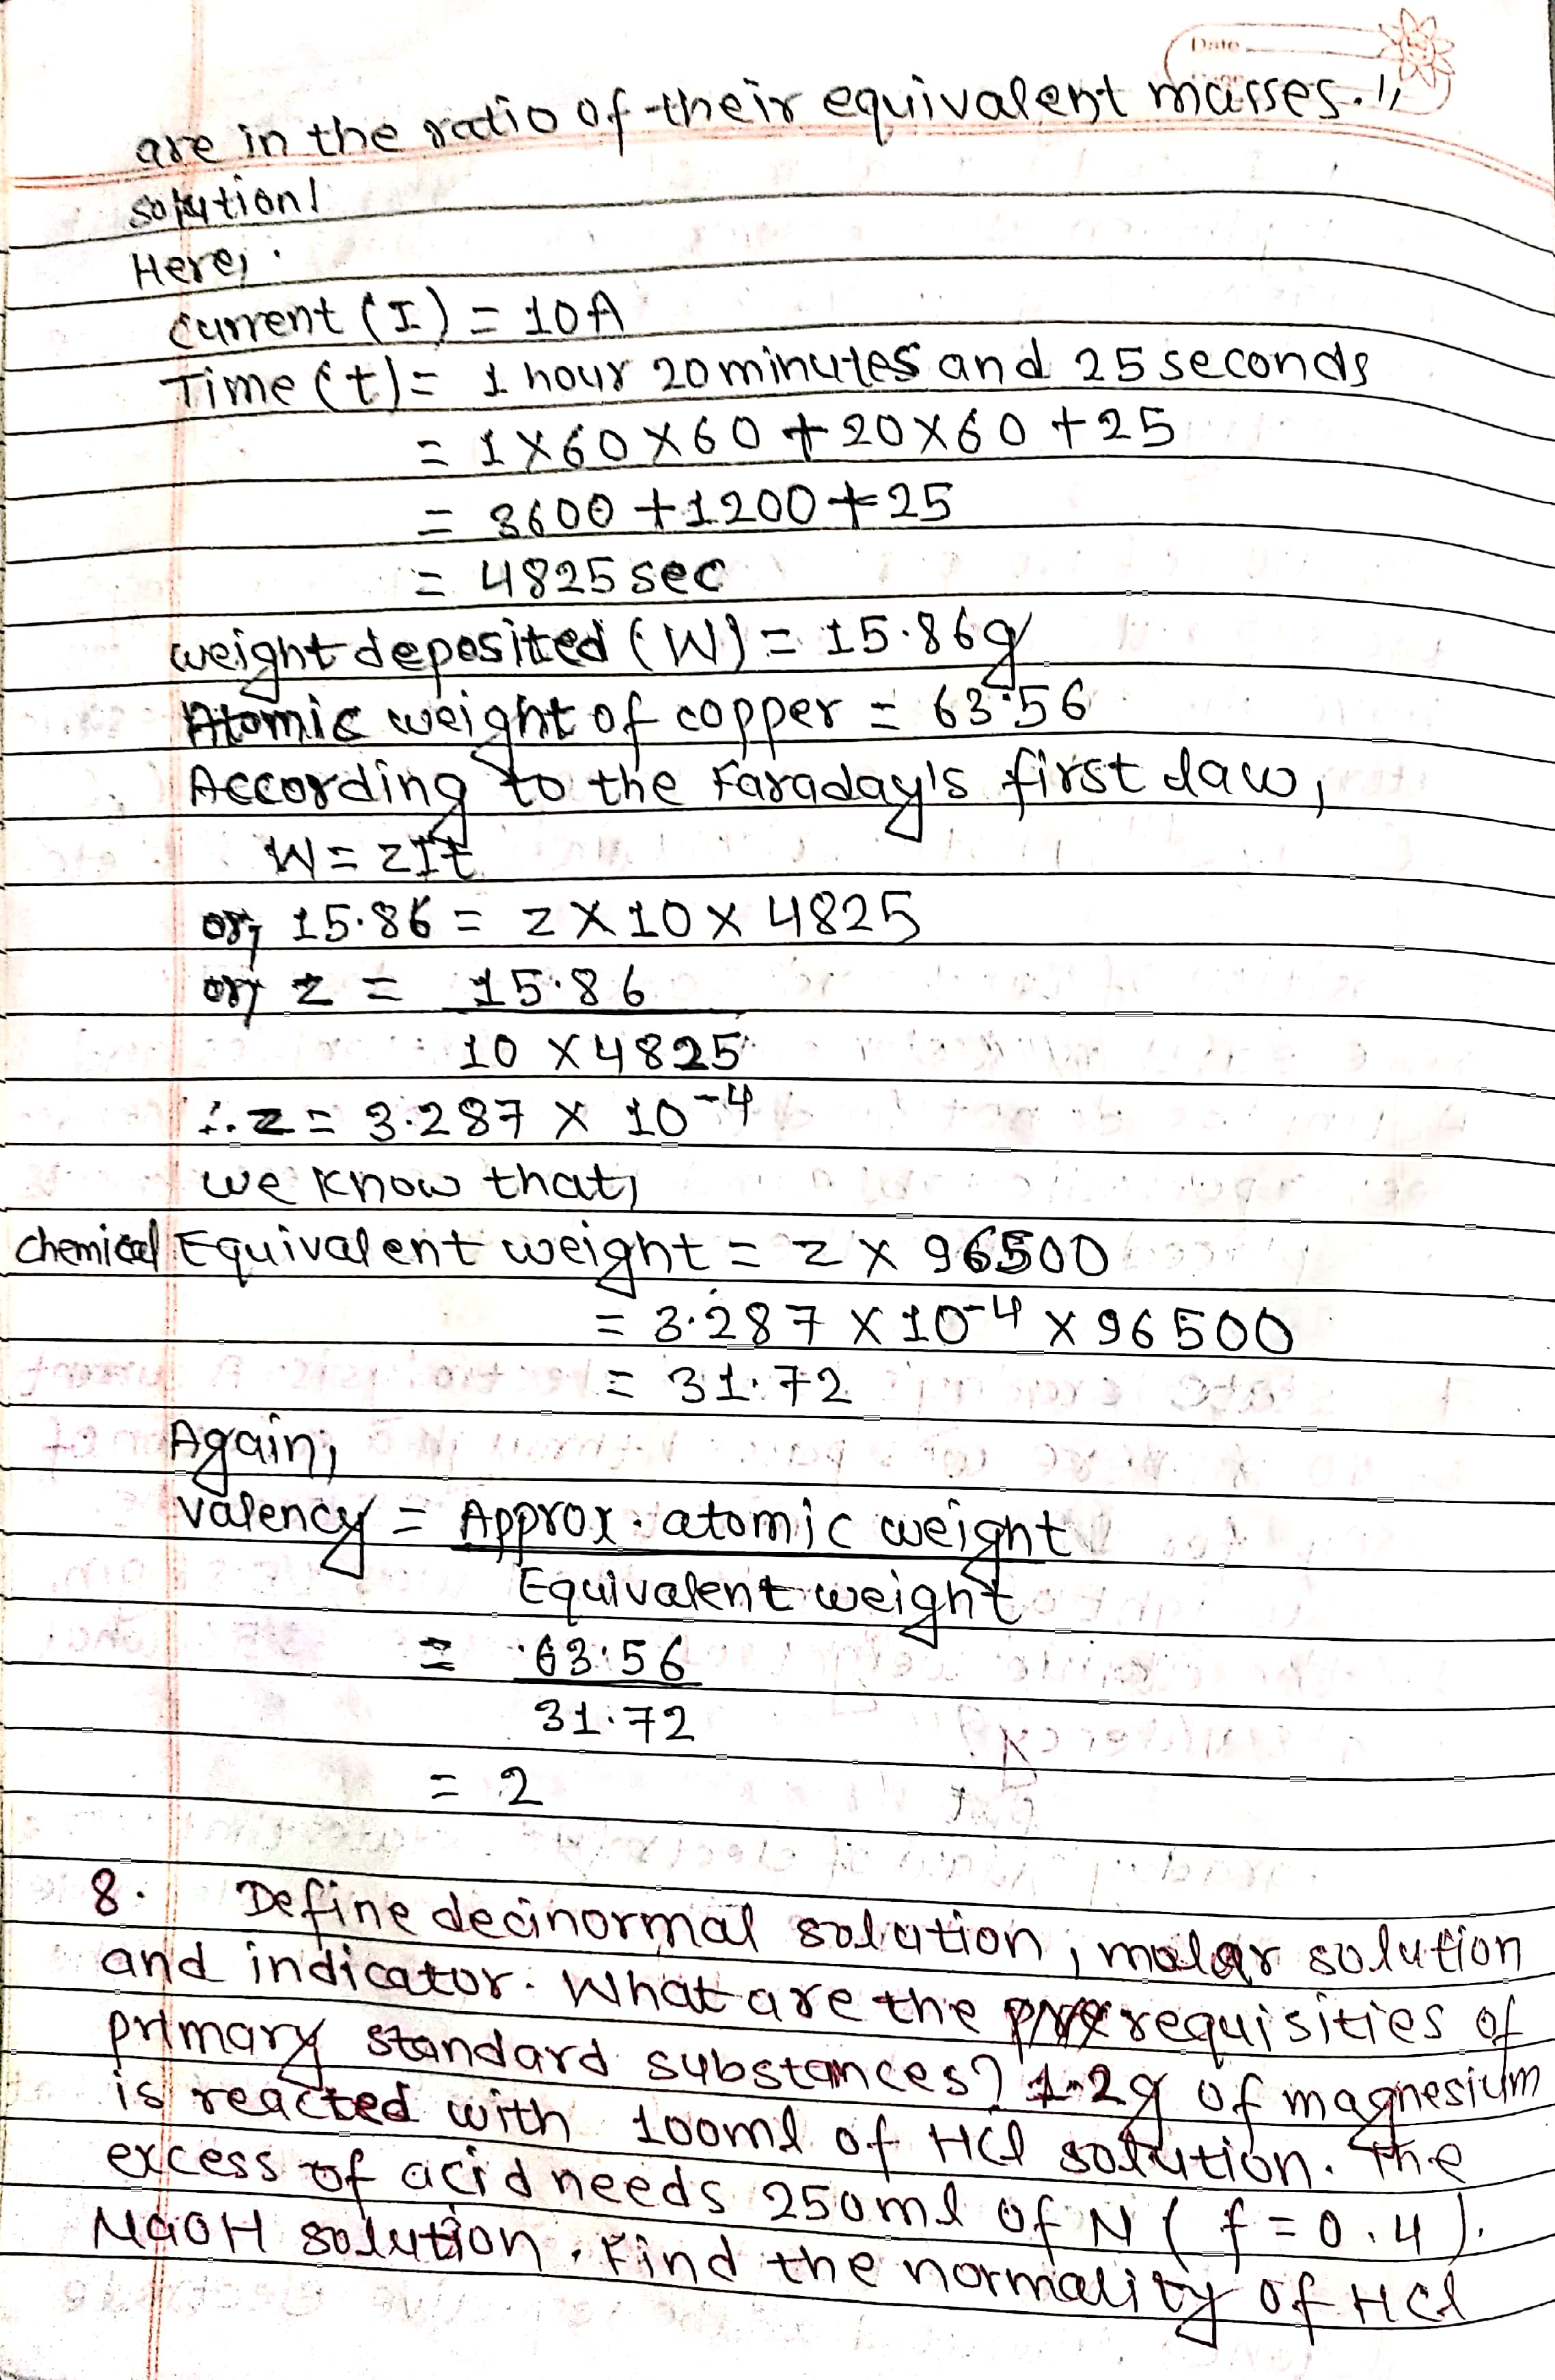 Date
are in the ratio of their equivalent masses.
solution!
Here,
current (I) = 10A
Time (t) = 1 hour 20 minutes and 25 seconds
= 1X60X60+20X60+25
= 3600+1200+25
= 4825 sec
weight deposited (W) = 15.86g
Atomic weight of copper = 63.56
According to the Faraday's first law,
W = zIt
or, 15.86 = z X 10 X 4825
or, z = 15.86
10 X 4825
∴ z = 3.287 X 10⁻⁴
we know that,
chemical Equivalent weight = z X 96500
= 3.287 X 10⁻⁴ X 96500
= 31.72
Again,
valency = Approx. atomic weight
Equivalent weight
= 63.56
31.72
= 2
8. Define decinormal solution, molar solution
and indicator. What are the prerequisities of
primary standard substances? 1.2g of magnesium
is reacted with 100ml of HCl solution. The
excess of acid needs 250ml of N (f=0.4).
NaOH solution. Find the normality of HCl